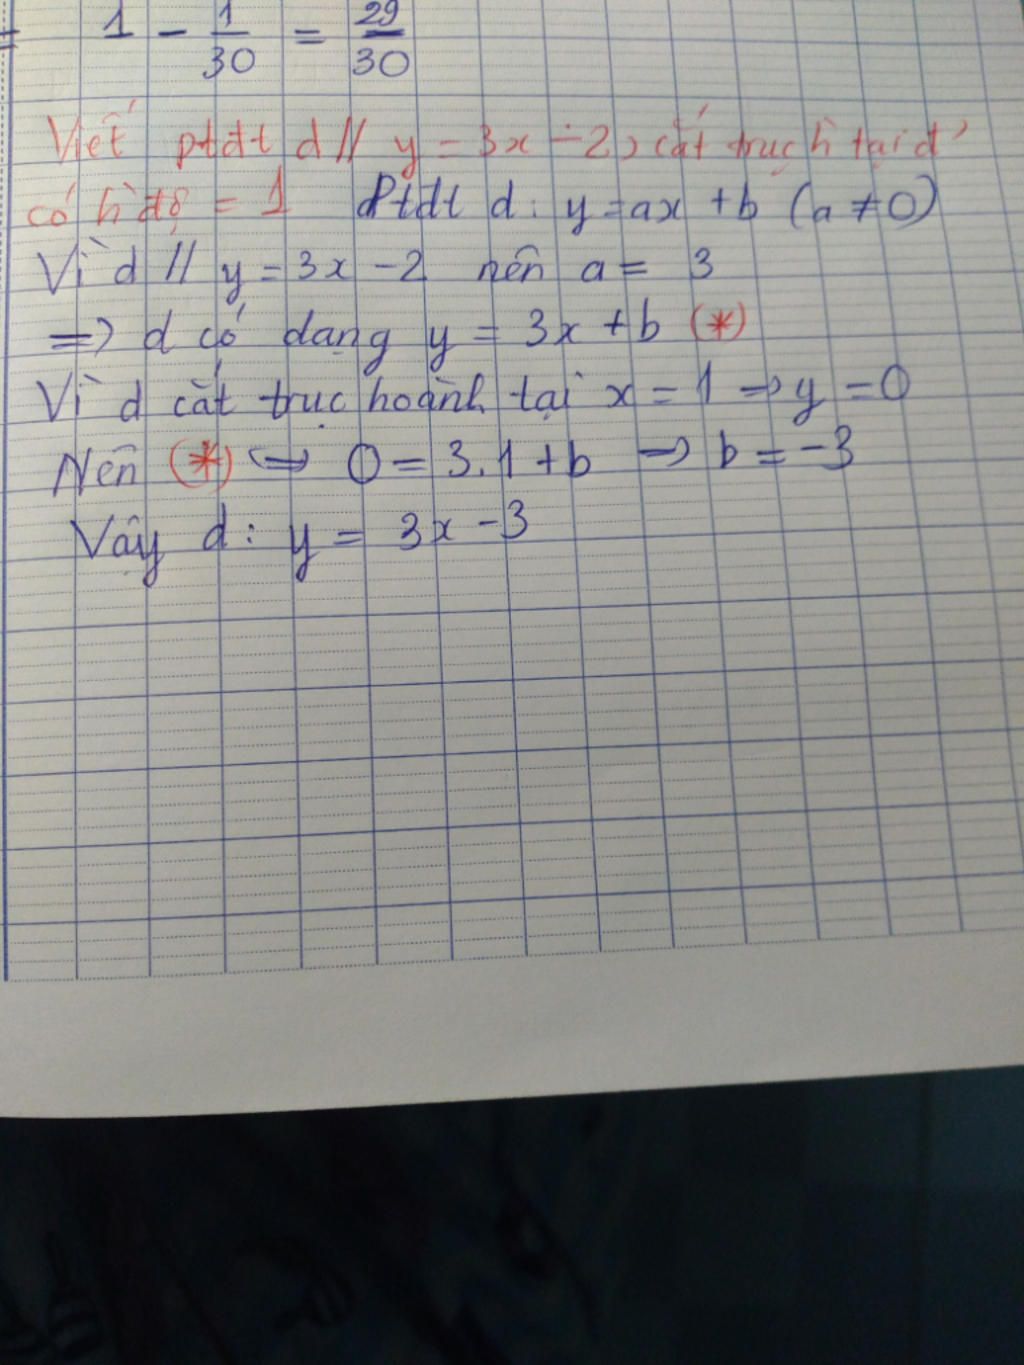 = 1 - 1/30 = 29/30
Viết ptđt d // y = 3x - 2, cắt trục h tại đ'
có h độ = 1 Ptdt d: y = ax + b (a ≠ 0)
Vì d // y = 3x - 2 nên a = 3
=> d có dạng y = 3x + b (*)
Vì d cắt trục hoành tại x = 1 => y = 0
Nên (*) <=> 0 = 3.1 + b => b = -3
Vậy d: y = 3x - 3